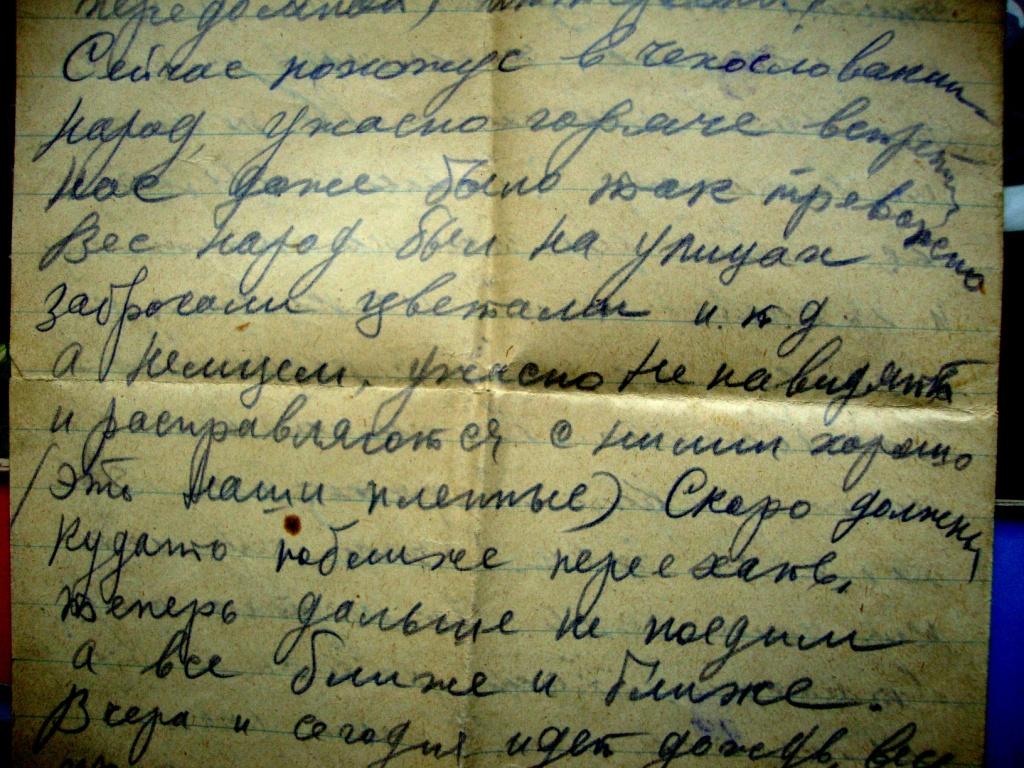 Сейчас нохожус в Чехословакии
Народ, ужасно горяче встретил
нас даже было так тревожно
Вес народ был на улицах
забросали цветами и. т д.
а немцем, ужасно не навидят
и расправляются с ними хорошо
(Это наши пленные) Скоро должны
кудато поближе переехать,
теперь дальше не поедим
а все ближе и ближе.
Вчера и сегодня идет дождь, все